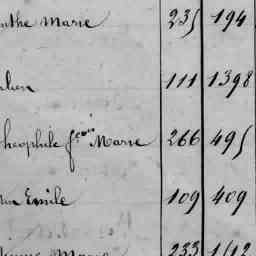 Marie 235 194
111 1398
Théophile fcois Marie 266 495
Emile 109 409
Marie 233 1612